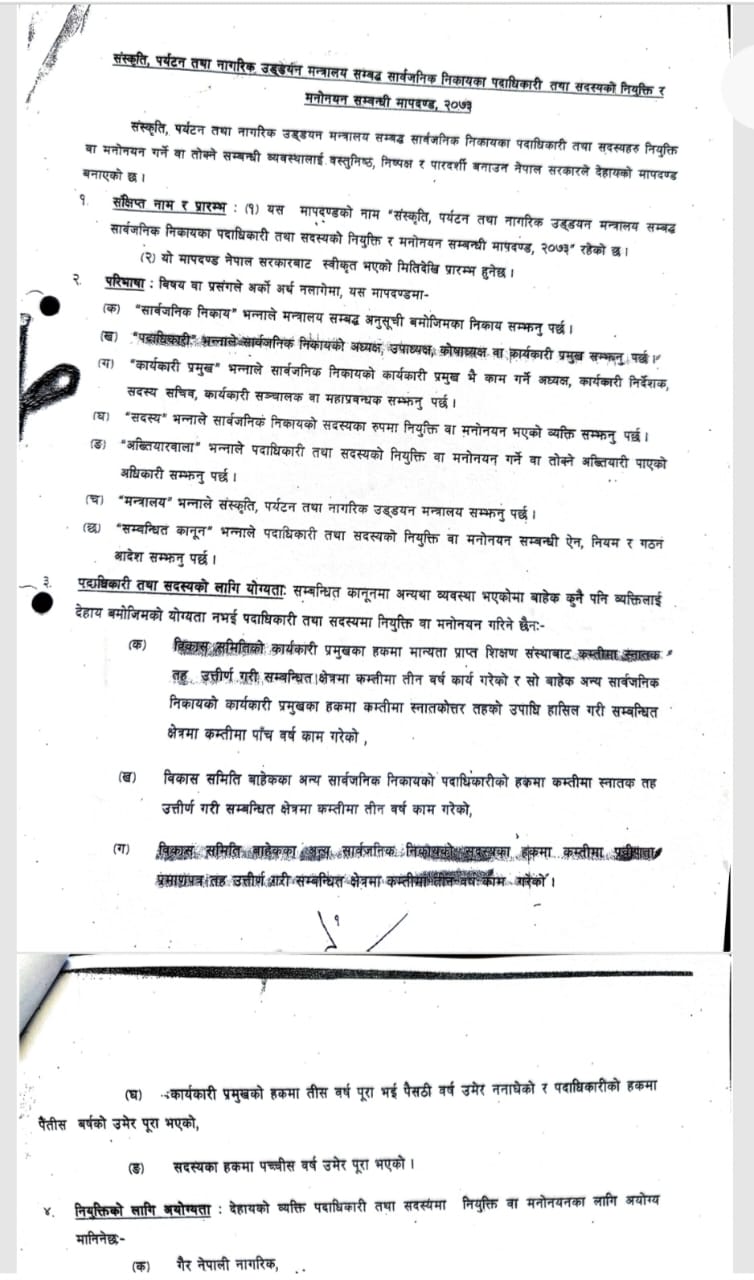 संस्कृति, पर्यटन तथा नागरिक उड्डयन मन्त्रालय सम्बद्ध सार्वजनिक निकायका पदाधिकारी तथा सदस्यको नियुक्ति र
मनोनयन सम्बन्धी मापदण्ड, २०७३
संस्कृति, पर्यटन तथा नागरिक उड्डयन मन्त्रालय सम्बद्ध सार्वजनिक निकायका पदाधिकारी तथा सदस्यहरु नियुक्ति
वा मनोनयन गर्ने वा तोक्ने सम्बन्धी व्यवस्थालाई वस्तुनिष्ठ, निष्पक्ष र पारदर्शी बनाउन नेपाल सरकारले देहायको मापदण्ड
बनाएको छ ।
१. संक्षिप्त नाम र प्रारम्भ : (१) यस मापदण्डको नाम "संस्कृति, पर्यटन तथा नागरिक उड्डयन मन्त्रालय सम्बद्ध
सार्वजनिक निकायका पदाधिकारी तथा सदस्यको नियुक्ति र मनोनयन सम्बन्धी मापदण्ड, २०७३" रहेको छ ।
(२) यो मापदण्ड नेपाल सरकारबाट स्वीकृत भएको मितिदेखि प्रारम्भ हुनेछ ।
२. परिभाषा : बिषय वा प्रसंगले अर्को अर्थ नलागेमा, यस मापदण्डमा-
(क) "सार्वजनिक निकाय" भन्नाले मन्त्रालय सम्बद्ध अनुसूची बमोजिमका निकाय सम्झनु पर्छ ।
(ख) "पदाधिकारी" भन्नाले सार्वजनिक निकायको अध्यक्ष, उपाध्यक्ष, कोषाध्यक्ष वा कार्यकारी प्रमुख सम्झनु पर्छ ।
(ग) "कार्यकारी प्रमुख" भन्नाले सार्वजनिक निकायको कार्यकारी प्रमुख भै काम गर्ने अध्यक्ष, कार्यकारी निर्देशक,
सदस्य सचिव, कार्यकारी सञ्चालक वा महाप्रवन्धक सम्झनु पर्छ ।
(घ) "सदस्य" भन्नाले सार्वजनिक निकायको सदस्यका रुपमा नियुक्ति वा मनोनयन भएको व्यक्ति सम्झनु पर्छ ।
(ङ) "अख्तियारवाला" भन्नाले पदाधिकारी तथा सदस्यको नियुक्ति वा मनोनयन गर्ने वा तोक्ने अख्तियारी पाएको
अधिकारी सम्झनु पर्छ ।
(च) "मन्त्रालय" भन्नाले संस्कृति, पर्यटन तथा नागरिक उड्डयन मन्त्रालय सम्झनु पर्छ ।
(छ) "सम्बन्धित कानून" भन्नाले पदाधिकारी तथा सदस्यको नियुक्ति वा मनोनयन सम्बन्धी ऐन, नियम र गठन
आदेश सम्झनु पर्छ ।
३. पदाधिकारी तथा सदस्यको लागि योग्यताः सम्बन्धित कानूनमा अन्यथा व्यवस्था भएकोमा बाहेक कुनै पनि व्यक्तिलाई
देहाय बमोजिमको योग्यता नभई पदाधिकारी तथा सदस्यमा नियुक्ति वा मनोनयन गरिने छैनः-
(क) विकास समितिको कार्यकारी प्रमुखका हकमा मान्यता प्राप्त शिक्षण संस्थाबाट कम्तीमा स्नातक
तह उत्तीर्ण गरी सम्बन्धित क्षेत्रमा कम्तीमा तीन वर्ष कार्य गरेको र सो बाहेक अन्य सार्वजनिक
निकायको कार्यकारी प्रमुखका हकमा कम्तीमा स्नातकोत्तर तहको उपाधि हासिल गरी सम्बन्धित
क्षेत्रमा कम्तीमा पाँच वर्ष काम गरेको ,
(ख) विकास समिति बाहेकका अन्य सार्वजनिक निकायको पदाधिकारीको हकमा कम्तीमा स्नातक तह
उत्तीर्ण गरी सम्बन्धित क्षेत्रमा कम्तीमा तीन वर्ष काम गरेको,
(ग) विकास समिति बाहेकका अन्य सार्वजनिक निकायको सदस्यका हकमा कम्तीमा
प्रमाणपत्र तह उत्तीर्ण गरी सम्बन्धित क्षेत्रमा कम्तीमा तीन वर्ष काम गरेको ।
१
(घ) कार्यकारी प्रमुखको हकमा तीस वर्ष पूरा भई पैसठी वर्ष उमेर ननाघेको र पदाधिकारीको हकमा
पैंतीस बर्षको उमेर पूरा भएको,
(ङ) सदस्यका हकमा पच्चीस वर्ष उमेर पूरा भएको ।
४. नियुक्तिको लागि अयोग्यता : देहायको व्यक्ति पदाधिकारी तथा सदस्यमा नियुक्ति वा मनोनयनका लागि अयोग्य
मानिनेछः-
(क) गैर नेपाली नागरिक,